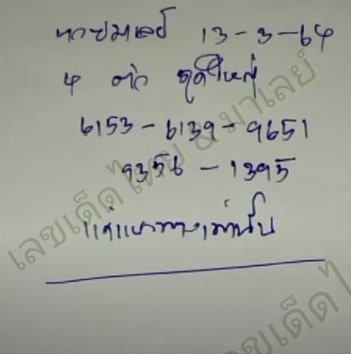 หวยมาเลย์ 13-3-64
4 ตัว ชุดใหญ่
6153-6139-9651
9356-1395
แค่แนวทางเท่านั้น
เลขเด็ดไทย & มาเลย์
เลขเด็ดไ